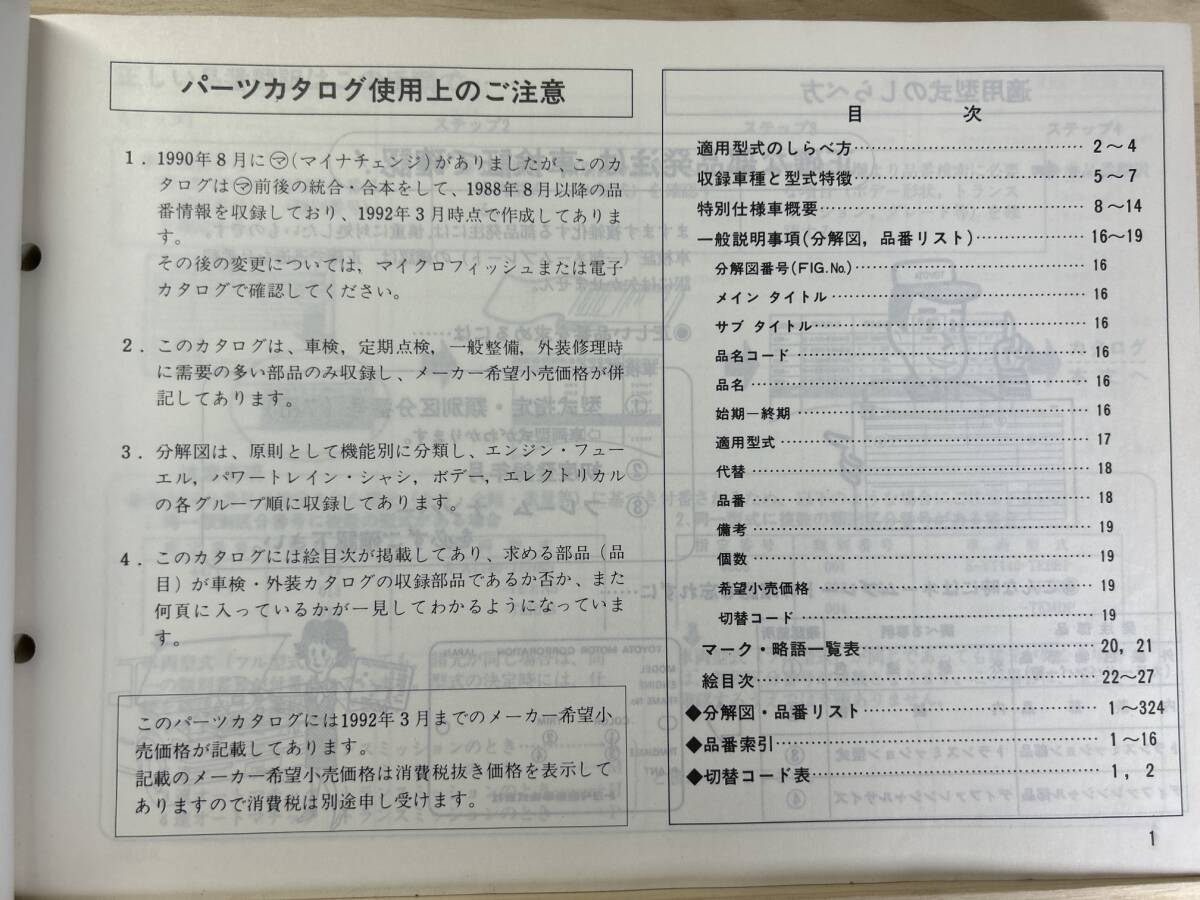 パーツカタログ使用上のご注意
1．1990年8月に㋮(マイナチェンジ)がありましたが、このカ
タログは㋮前後の統合・合本をして、1988年8月以降の品
番情報を収録しており、1992年3月時点で作成してありま
す。
その後の変更については，マイクロフィッシュまたは電子
カタログで確認してください。
2．このカタログは、車検，定期点検，一般整備，外装修理時
に需要の多い部品のみ収録し、メーカー希望小売価格が併
記してあります。
3．分解図は、原則として機能別に分類し、エンジン・フュー
エル，パワートレイン・シャシ，ボデー，エレクトリカル
の各グループ順に収録してあります。
4．このカタログには絵目次が掲載してあり、求める部品（品
目）が車検・外装カタログの収録部品であるか否か、また
何頁に入っているかが一見してわかるようになっていま
す。
このパーツカタログには1992年3月までのメーカー希望小
売価格が記載してあります。
記載のメーカー希望小売価格は消費税抜き価格を表示して
ありますので消費税は別途申し受けます。
目　次
適用型式のしらべ方……2～4
収録車種と型式特徴……5～7
特別仕様車概要……8～14
一般説明事項(分解図，品番リスト)……16～19
分解図番号(FIG.No.)……16
メイン タイトル……16
サブ タイトル……16
品名コード……16
品名……16
始期―終期……16
適用型式……17
代替……18
品番……18
備考……19
個数……19
希望小売価格……19
切替コード……19
マーク・略語一覧表……20，21
絵目次……22～27
◆分解図・品番リスト……1～324
◆品番索引……1～16
◆切替コード表……1，2
1